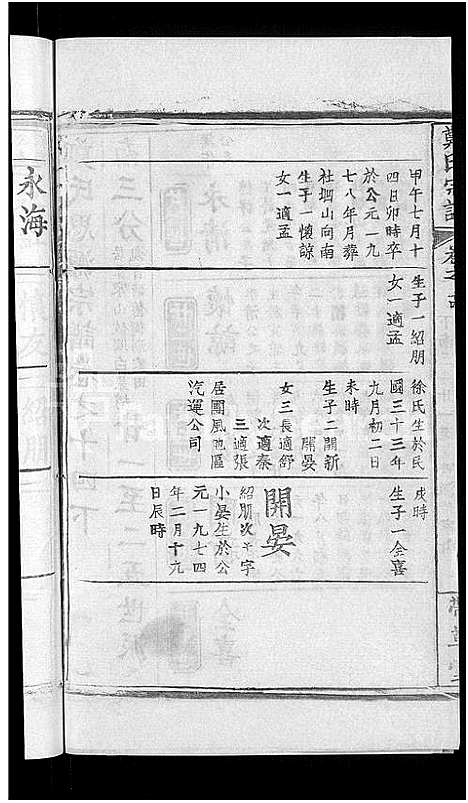 鄭氏宗譜
卷之
甲午七月十
四日卯時卒
於公元一九
七八年月葬
社堋山向南
生子一懷諒
女一適孟
生子一紹朋
女一適孟
徐氏生於民
國三十三年
九月初二日
未時
生子二開新
開晏
女三長適舒
次適秦
三適張
居圖風地區
汽運公司
戌時
生子一全喜
開晏
紹朋次子字
小晏生於公
元一九七四
年二月十六
日辰時
永海